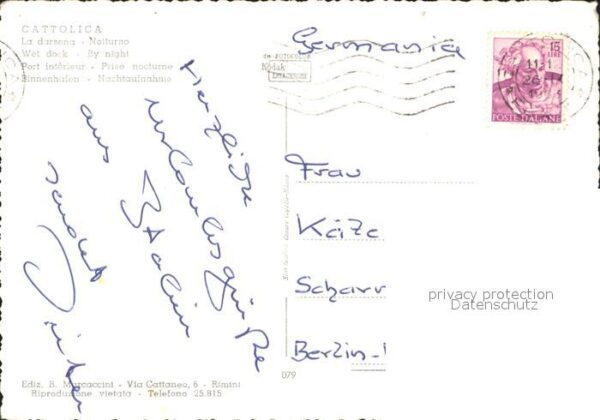 CATTOLICA
La darsena - Notturno
Wet dock - By night
Port intérieur - Prise nocturne
Binnenhafen - Nachtaufnahme
da FOTOCOLOR
Kodak
EKTACHROME
15
LIRE
POSTE ITALIANE
Germania
Herzliche
Urlaubsgrüße
aus Italien
sendet
Frau
Käze
Scharr
Berlin-1
privacy protection
Datenschutz
079
Ediz. B. Marcaccini - Via Cattaneo, 6 - Rimini
Riproduzione vietata - Telefono 25.815